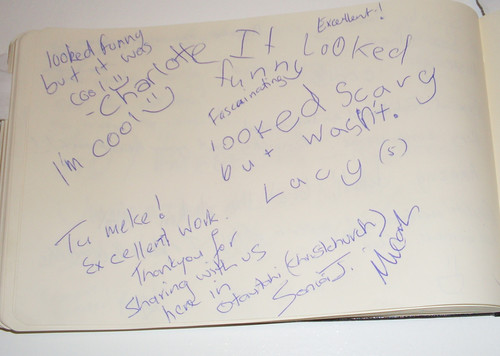 looked funny
but it was
cool
- Charlotte
I'm cool
Excellent!
It looked
funny
Fascainating
looked Scary
but wasn't.
Lacy (5)
Tu meke!
Excellent work.
Thankyou for
Sharing with us
here in
Otautahi (Christchurch)
Sonia J.
Micah